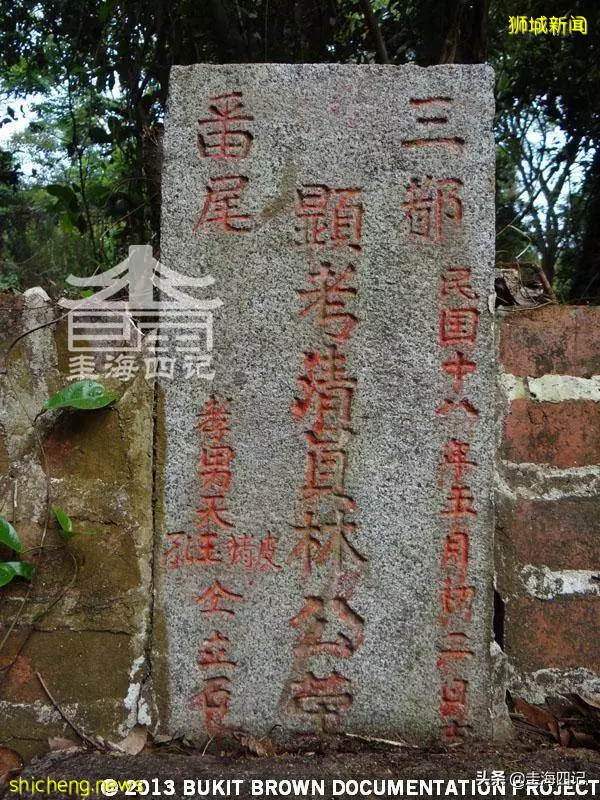 狮城新闻
三都
民國十八年五月初二日
顯考清林公
番尾
孝男天玉仝立石
圭海四记
头条 @圭海四记
shicheng.news
© 2013 BUKIT BROWN DOCUMENTATION PROJECT